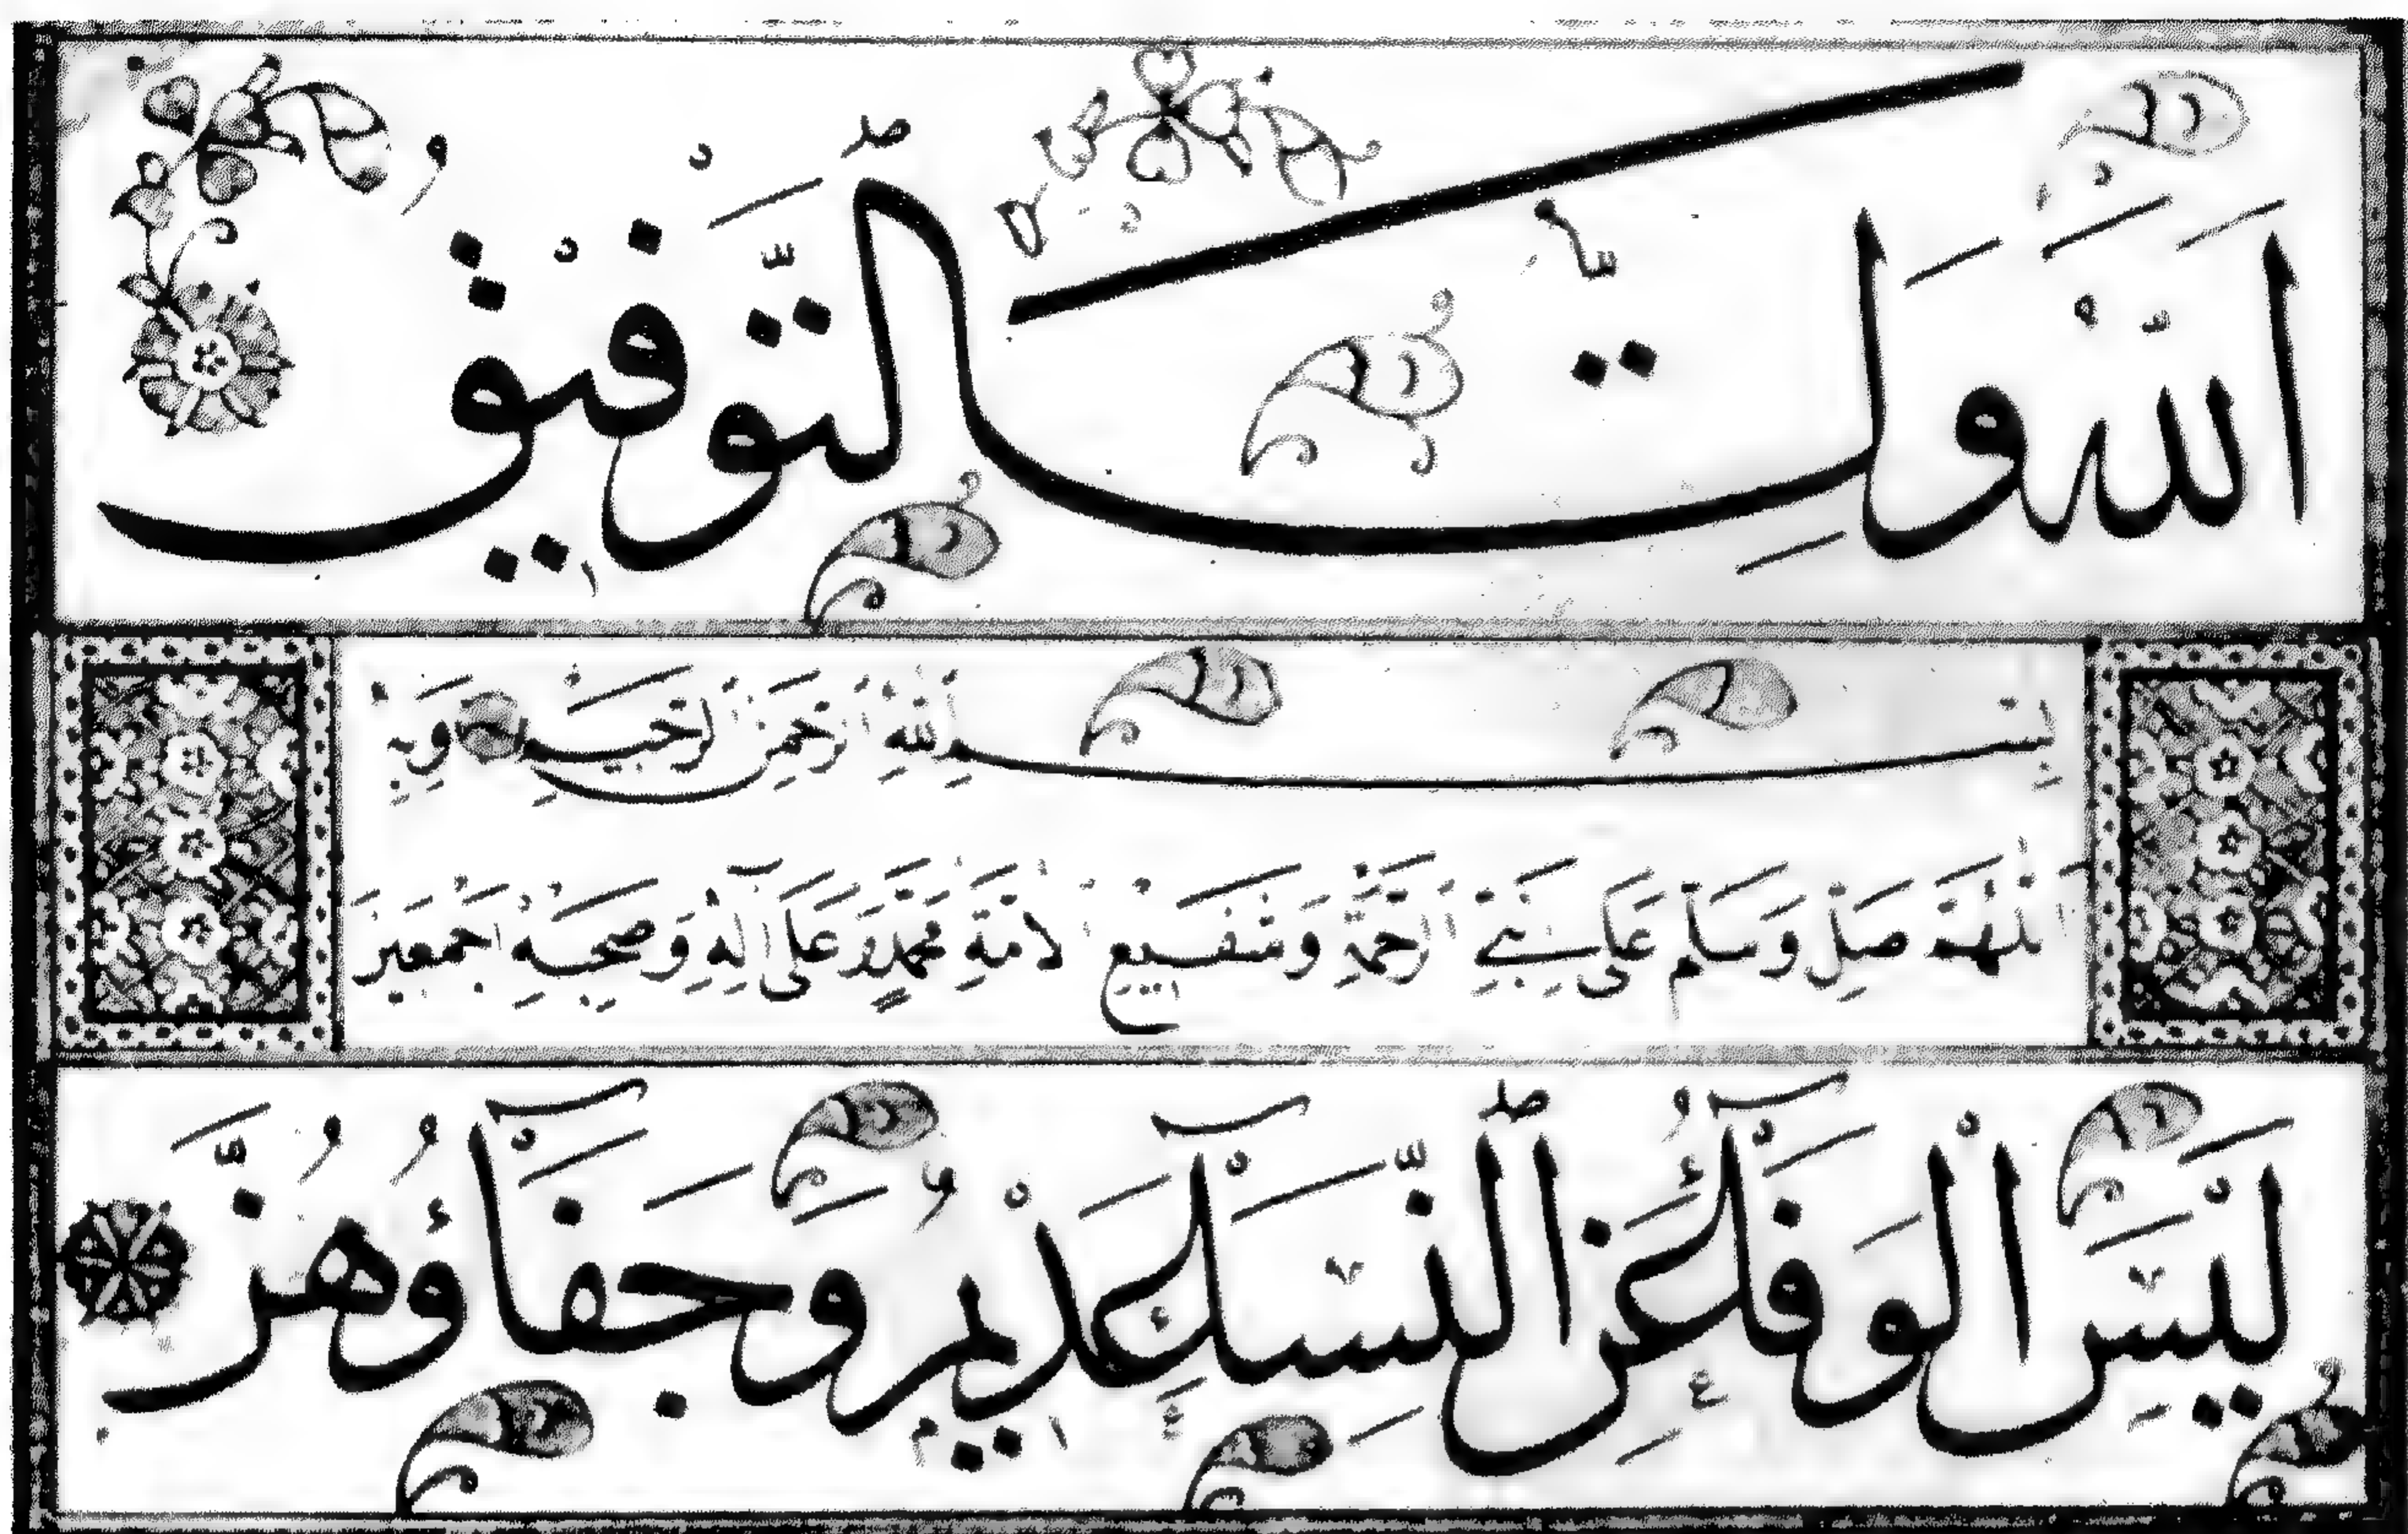 الله ولي التوفيق
بِسْمِ اللهِ الرَّحْمٰنِ الرَّحِيمِ وَبِهِ
اَللّٰهُمَّ صَلِّ وَسَلِّمْ عَلَى نَبِيِّ الرَّحْمَةِ وَشَفِيعِ الْاُمَّةِ مُحَمَّدٍ وَعَلَى آلِهِ وَصَحْبِهِ اَجْمَعِينَ
لَيْسَ الْوَفَآءُ عَنِ النِّسَآءِ عَدِيْمٌ وَجَفَآؤُهُنَّ